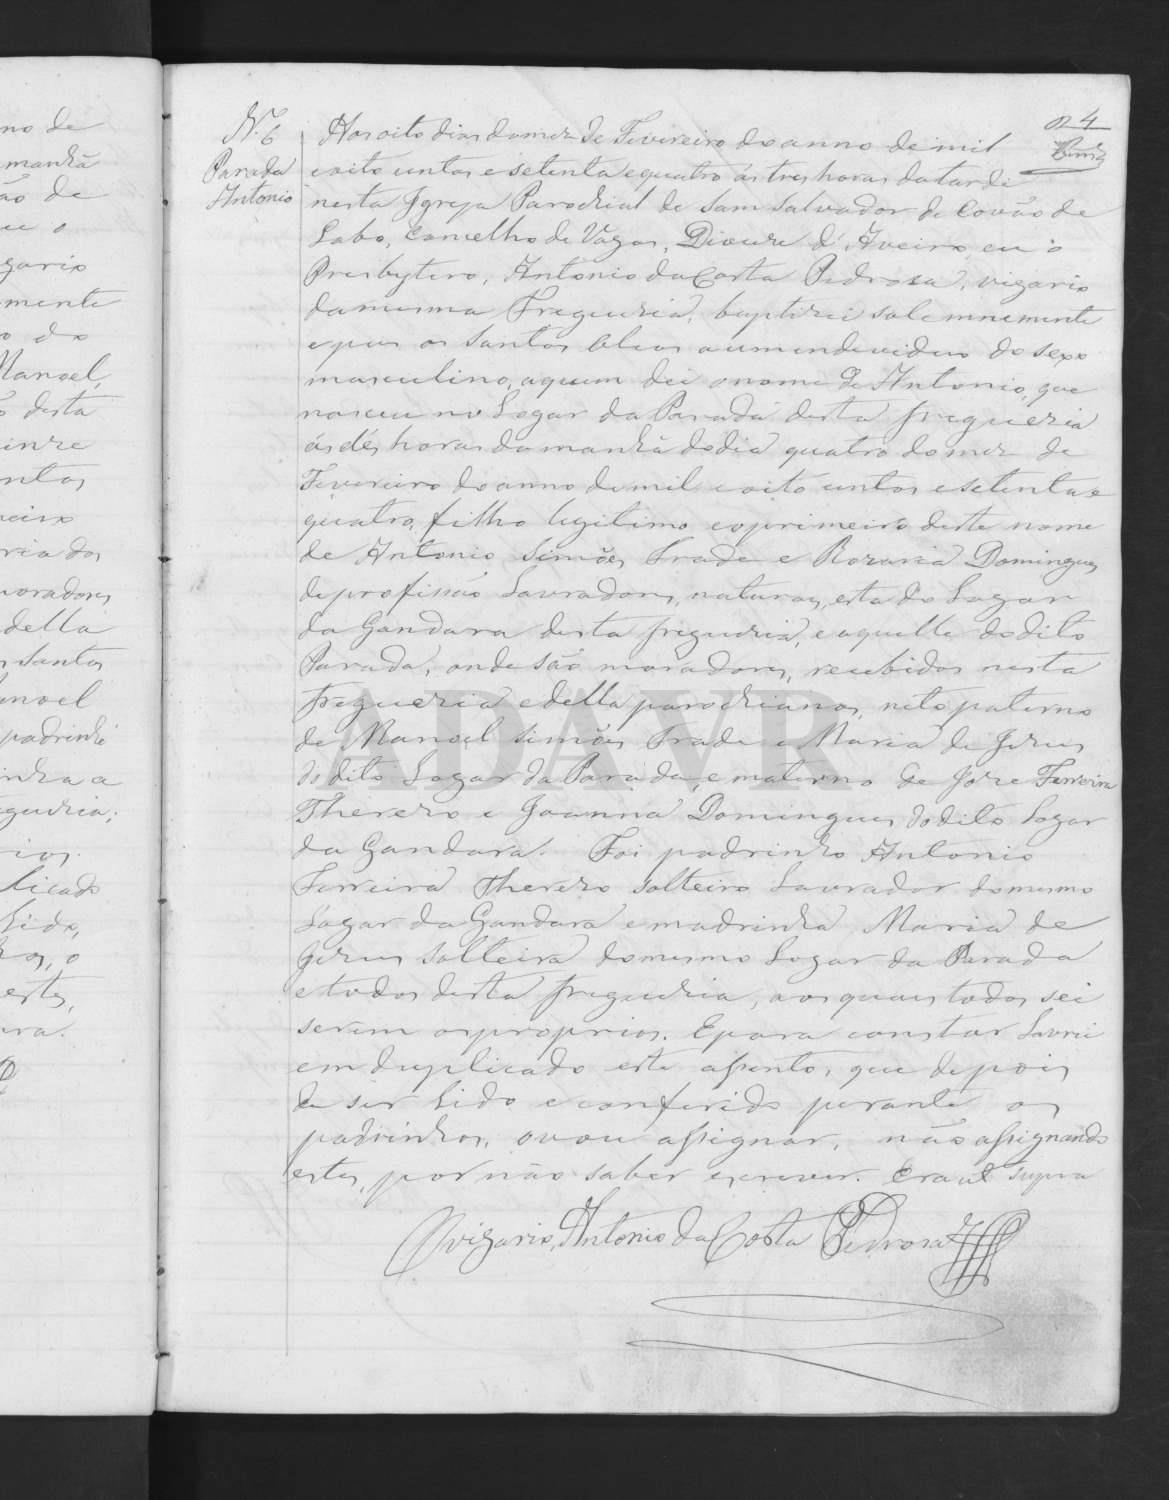 no de
manhã
ão de
ue o
gario
mente
o do
Manoel,
o desta
inze
ntos
neiro
ria dos
moradores
della
s Santos
anoel
padrinho
inha a
eguezia;
ios.
licado
lido,
hos, o
estes,
ura.
N.º 6
Parada
Antonio
4
Aos oito dias do mez de Fevereiro do anno de mil
e oito centos e setenta e quatro ás tres horas da tarde
nesta Igreja Parochial de Sam Salvador de Covão de
Lobo, Concelho de Vagos, Diocese d'Aveiro, eu o
Presbytero, Antonio da Costa Pedrosa, vigario
da mesma Freguezia, baptizei solemnemente
e puz os Santos Oleos a um individuo do sexo
masculino, a quem dei o nome de Antonio, que
nasceu no Logar da Parada desta freguezia
ás dés horas da manhã do dia quatro do mez de
Fevereiro do anno de mil e oito centos e setenta e
quatro, filho legitimo e o primeiro deste nome
de Antonio Simões Frade e Rozaria Domingues
de profissão Lavradores, naturaes, esta do Logar
da Gandara desta freguezia, e aquelle do dito
Parada, onde são moradores, recebidos nesta
freguezia e della parochianos, neto paterno
de Manoel Simões Frade e Maria de Jezus
do dito Logar da Parada, e materno de Joze Ferreira
Therezo e Joanna Domingues do dito Logar
da Gandara. Foi padrinho Antonio
Ferreira Therezo solteiro Lavrador do mesmo
Logar da Gandara e madrinha Maria de
Jezus Solteira do mesmo Logar da Parada
e todos desta freguezia, aos quaes todos sei
serem os proprios. E para constar Lavrei
em duplicado este assento, que depois
de ser lido e conferido perante os
padrinhos, o vou assignar, não assignando
estes, por não saber escrever. Era ut supra
O vigario, Antonio da Costa Pedrosa
ADAVR